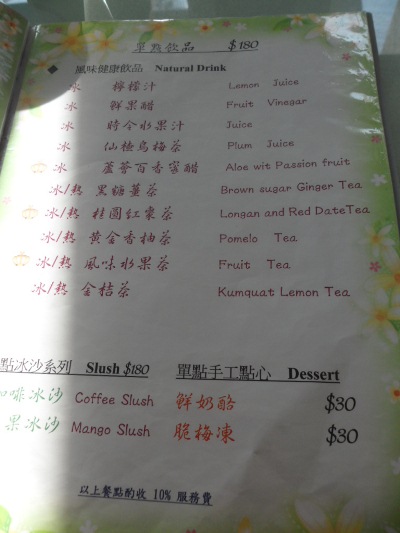 單點飲品 $180
◆ 風味健康飲品 Natural Drink
冰 檸檬汁 Lemon Juice
冰 鮮果醋 Fruit Vinegar
冰 時令水果汁 Juice
冰 仙楂烏梅茶 Plum Juice
冰 蘆薈百香蜜醋 Aloe wit Passion fruit
冰/熱 黑糖薑茶 Brown sugar Ginger Tea
冰/熱 桂圓紅棗茶 Longan and Red DateTea
冰/熱 黃金香柚茶 Pomelo Tea
冰/熱 風味水果茶 Fruit Tea
冰/熱 金桔茶 Kumquat Lemon Tea
點冰沙系列 Slush $180 單點手工點心 Dessert
咖啡冰沙 Coffee Slush 鮮奶酪 $30
果冰沙 Mango Slush 脆梅凍 $30
以上餐點酌收 10% 服務費